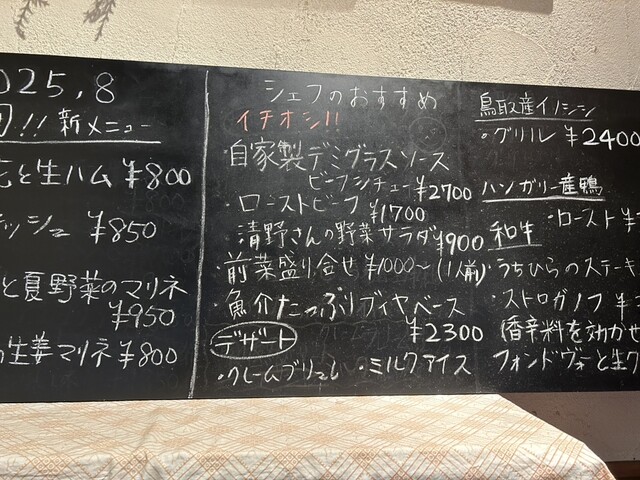 025.8
!! 新メニュー
と生ハム ¥800
ッシュ ¥850
と夏野菜のマリネ
¥950
生姜マリネ ¥800
シェフのおすすめ
イチオシ!!
・自家製デミグラスソース
ビーフシチュー ¥2700
・ローストビーフ ¥1700
清野さんの野菜サラダ ¥900
・前菜盛り合せ ¥1000〜(1人前)
・魚介たっぷりブイヤベース
¥2300
デザート
・クレームブリュレ ・ミルクアイス
鳥取産イノシシ
・グリル ¥2400
ハンガリー産鴨
・ロースト ¥
和牛
・うちひらのステーキ
・ストロガノフ ¥
香辛料を効かせ
フォンドヴォーと生ク